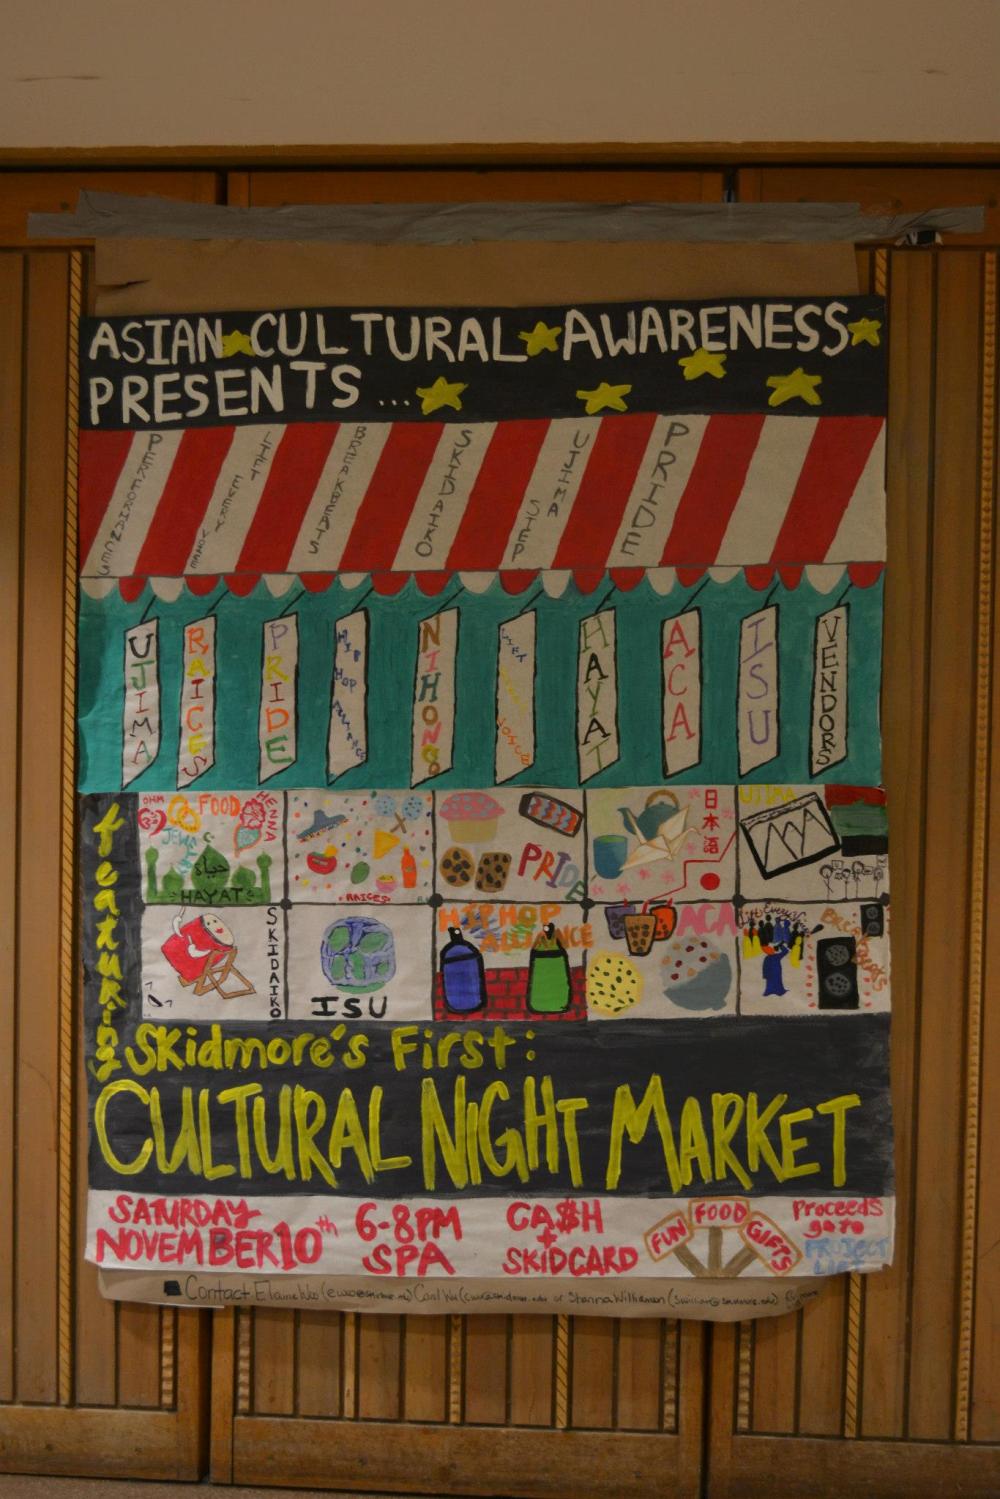 ASIAN CULTURAL AWARENESS
PRESENTS...
PERFORMANCES
LIFT EVERY VOICE
BREAKBEATS
SKIDAIKO
UJIMA STEP
PRIDE
UJIMA
RAICES
PRIDE
HIP HOP ALLIANCE
NIHONGO
LIFT VOICE
HAYAT
ACA
ISU
VENDORS
featuring
OHM
FOOD
HENNA
حياة
HAYAT
RAICES
PRIDE
日本語
UJIMA
SKIDAIKO
ISU
HIP HOP
ALLIANCE
ACA
Lift Every Voice
BREAKBeats
Skidmore's First:
CULTURAL NIGHT MARKET
SATURDAY
NOVEMBER 10th
6-8PM
SPA
CA$H
+
SKIDCARD
FUN
FOOD
GIFTS
Proceeds
go to
PROJECT
Contact Elaine Woo
or Shanna Williamson